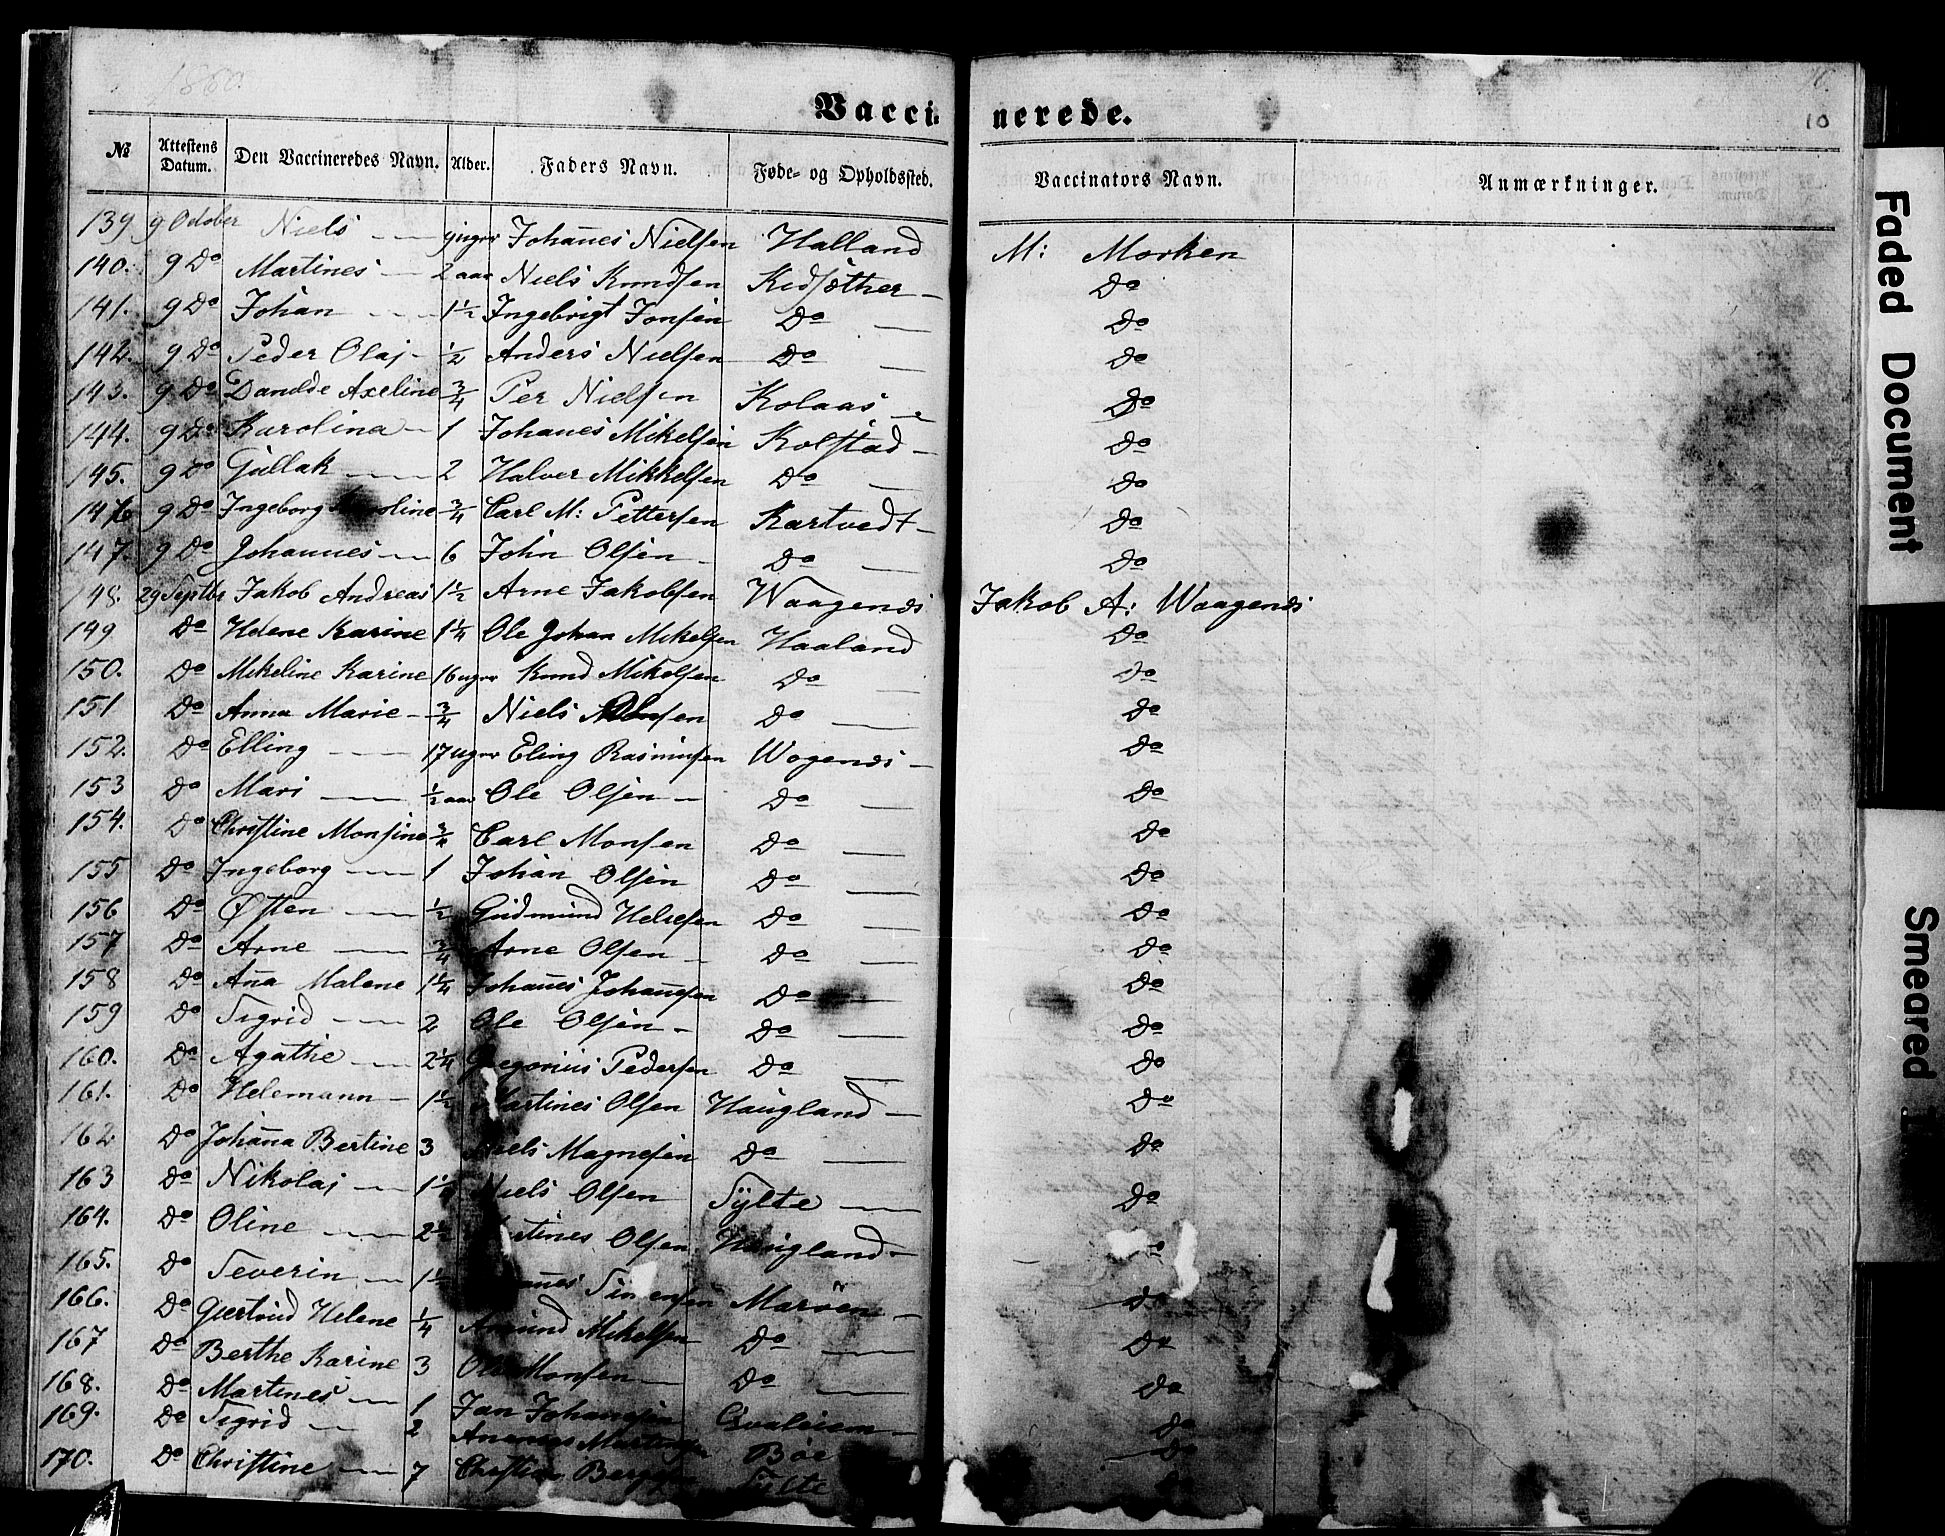 1860.
Vaccinerede.
10
№ Attestens Datum. Den Vaccineredes Navn. Alder. Faders Navn. Føde- og Opholdssted. Vaccinators Navn. Anmærkninger.
139 9 October Niels — Johan̄es Nielsen Halland M: Morken
140. 9 Do Martines — 2 aar Niels Knudsen Kidsæther — Do
141. 9 Do Johan — 1½ Ingebrigt Jonsen Do — Do
142. 9 Do Peder Olai — ½ Anders Nielsen Do — Do
143. 9 Do Axeline ¾ Per Nielsen Kolaas — Do
144. 9 Do Karolina — 1 Johan̄es Mikelsen Kolstad — Do
145. 9 Do Gullak — 2 Halver Mikkelsen Do — Do
146 9 Do Ingeborg ¾ Carl M: Pettersen Kartvedt — Do
147. 9 Do Johannes — 6 John Olsen — Do — Do
148. 29 Septbr Jakob Andreas 1½ Arne Jakobsen Waagenæs Jakob A: Waagenæs
149 Do Helene Karine 1¼ Ole Johan Mikelsen Haaland Do
150. Do Mikeline Karine 16 uger Knud Mikelsen Do — Do
151 Do Anna Marie — ¾ Niels Do — Do
152. Do Elling — 17 uger Eling Rasmusen Wogenæs — Do
153 Do Mari — ½ aar Ole Olsen — Do — Do
154. Do Christine Monsine ¾ Carl Monsen Do — Do
155 Do Ingeborg — 1 Johan Olsen Do — Do
156 Do Østen — ½ Gudmund Helgesen Do — Do
157 Do Arne — ¾ Arne Olsen — Do — Do
158 Do An̄a Malene 1¼ Johan̄es Johan̄esen Do — Do
159 Do Sigrid — 2 Ole Olsen — Do — Do
160. Do Agathe — 2¼ Gregorius Pedersen Do — Do
161. Do Helemann — 1½ Martines Olsen Haugland — Do
162 Do Johan̄a Bertine 3 Niels Magnesen Do — Do
163 Do Nikolai — Niels Olsen Sylte — Do
164. Do Oline — 2½ Martines Olsen Haugland —
165. Do Severin — Marøen — Do
166. Do Gjertrud Helene ¼ Amund Mikelsen Do — Do
167 Do Berthe Karine 3 Ole Monsen — Do — Do
168. Do Martines — 1 Jan Johannesen Do
169. Do Sigrid — 2 Bøe Do
170. Do Christine — 7 Sylte Do
Faded Document
Smeared